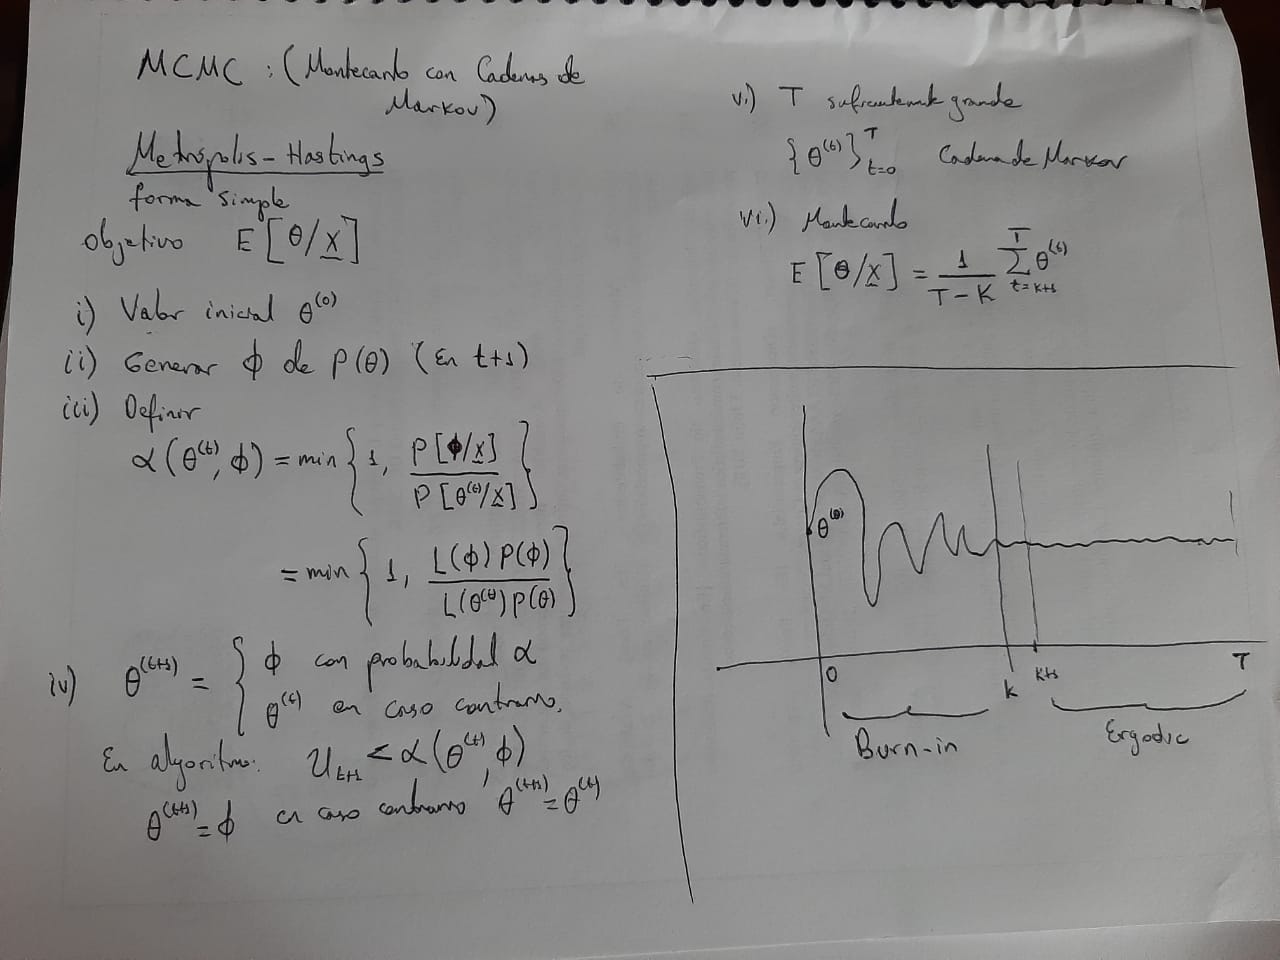 MCMC : (Montecarlo con Cadenas de
Markov)
Metrópolis-Hastings
forma simple
Objetivo E[θ/x]
i) Valor inicial θ^(0)
ii) Generar ϕ de P(θ) (En t+1)
iii) Definir
α(θ^(t), ϕ) = min { 1, P[ϕ/x] / P[θ^(t)/x] }
= min { 1, L(ϕ) P(ϕ) / L(θ^(t)) P(θ) }
iv) θ^(t+1) = { ϕ con probabilidad α
θ^(t) en caso contrario.
En algoritmo: U_t+1 < α(θ^(t), ϕ)
θ^(t+1) = ϕ en caso contrario θ^(t+1) = θ^(t)
v.) T suficientemente grande
{θ^(t)}_t=0^T Cadena de Markov
vi.) Montecarlo
E[θ/x] = 1 / T-K Σ_t=k+1^T θ^(t)
θ^(0)
0 K K+1 T
Burn-in Ergodic